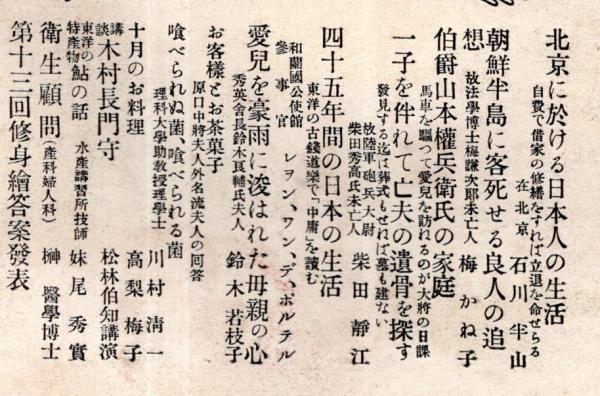 北京に於ける日本人の生活
自費で借家の修繕をすれば立退を命せらる
在北京 石川半山
朝鮮半島に客死せる良人の追
想 故法學博士梅謙次郎未亡人 梅かね子
伯爵山本權兵衞氏の家庭
馬車を驅つて愛兒を訪れるのが大將の日課
一子を伴れて亡夫の遺骨を探す
發見する迄は葬式もせねば墓も建ない
故陸軍砲兵大尉
柴田秀高氏未亡人 柴田靜江
四十五年間の日本の生活
東洋の古錢道樂で「中庸」を讀む
和蘭國公使館
參事官 レヲン、ワン、デ、ポルテル
愛兒を豪雨に浚はれた母親の心
秀英舍長鈴木良輔氏夫人 鈴木若枝子
お客樣とお茶菓子
原口中將夫人外名流夫人の回答
喰べられぬ菌、喰べられる菌
理科大學助敎授理學士 川村淸一
十月のお料理 高梨梅子
講談 木村長門守 松林伯知講演
東洋の特産物 鮎の話 水產講習所技師 妹尾秀實
衞生顧問(產科婦人科) 榊醫學博士
第十三回修身繪答案發表